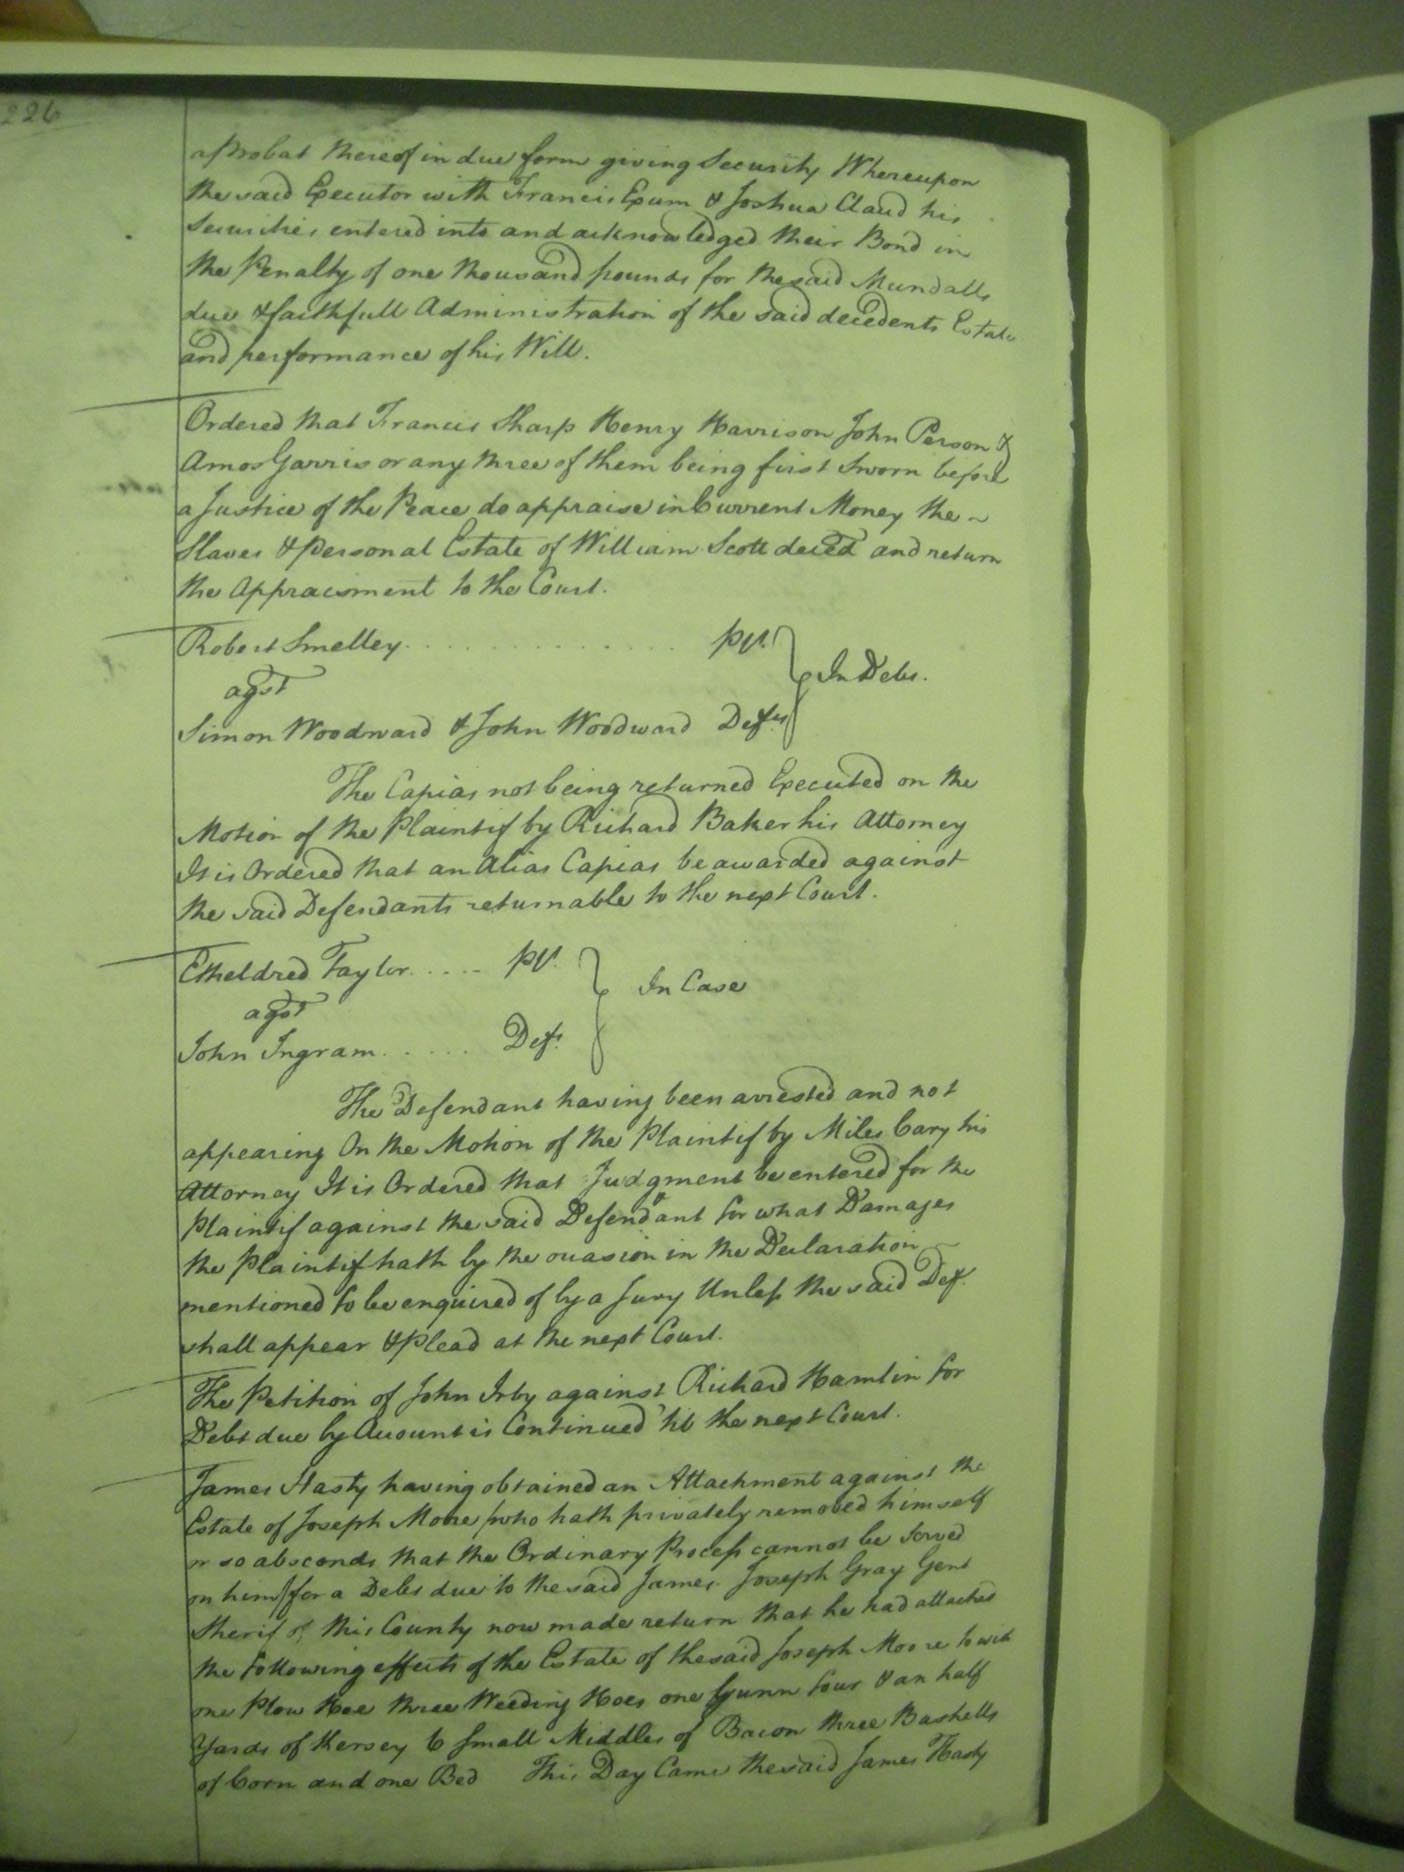 226
a Probat thereof in due form giving Security Whereupon
the said Executor with Francis Exum & Joshua Claud his
Securities entered into and acknowledged their Bond in
the Penalty of one thousand pounds for the said Mundalls
due & faithfull Administration of the said decedents Estate
and performance of his Will.
Ordered that Francis Sharp Henry Harrison John Person &
Amos Garris or any three of them being first Sworn before
a Justice of the Peace do appraise in Current Money the ~
Slaves & personal Estate of William Scott deced and return
the Appraisment to the Court.
Robert Smelley . . . . . . . . . . . . . . plt.
agst
In Debt.
Simon Woodward & John Woodward Defts
The Capias not being returned Executed on the
Motion of the Plaintif by Richard Baker his Attorney
It is Ordered that an Alias Capias be awarded against
the said Defendants returnable to the next Court.
Etheldred Taylor . . . . . plt.
agst
In Case
John Ingram . . . . . Deft.
The Defendant having been arrested and not
appearing On the Motion of the Plaintif by Miles Cary his
Attorney It is Ordered that Judgment be entered for the
Plaintif against the said Defendant for what Damages
the Plaintif hath by the ocasion in the Declaration
mentioned to be enquired of by a Jury Unless the said Deft.
shall appear & Plead at the next Court.
The Petition of John Irby against Richard Hamlin for
Debt due by Account is Continued 'til the next Court.
James Hasty having obtained an Attachment against the
Estate of Joseph More (who hath privately removed himself
or so absconds that the Ordinary Process cannot be served
on him) for a Debt due to the said James. Joseph Gray Gent
Sherif of this County now made return that he had attached
the following effects of the Estate of the said Joseph Moore to wit
one Plow Hoe three Weeding Hoes one Gunn four & an half
Yards of Kersey 6 small Middles of Bacon three Bushells
of Corn and one Bed This Day Came the said James Hasty